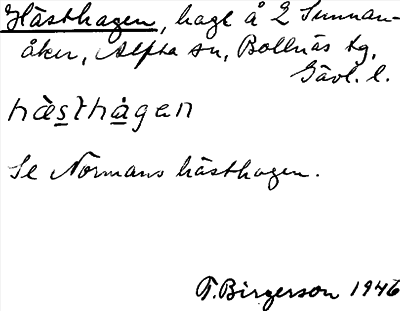 Hästhagen, hage å 2 Sunnan-
åker, Alfta sn, Bollnäs tg,
Gävl. l.
hàsthàgen
Se Normans hästhagen.
T. Birgerson 1946